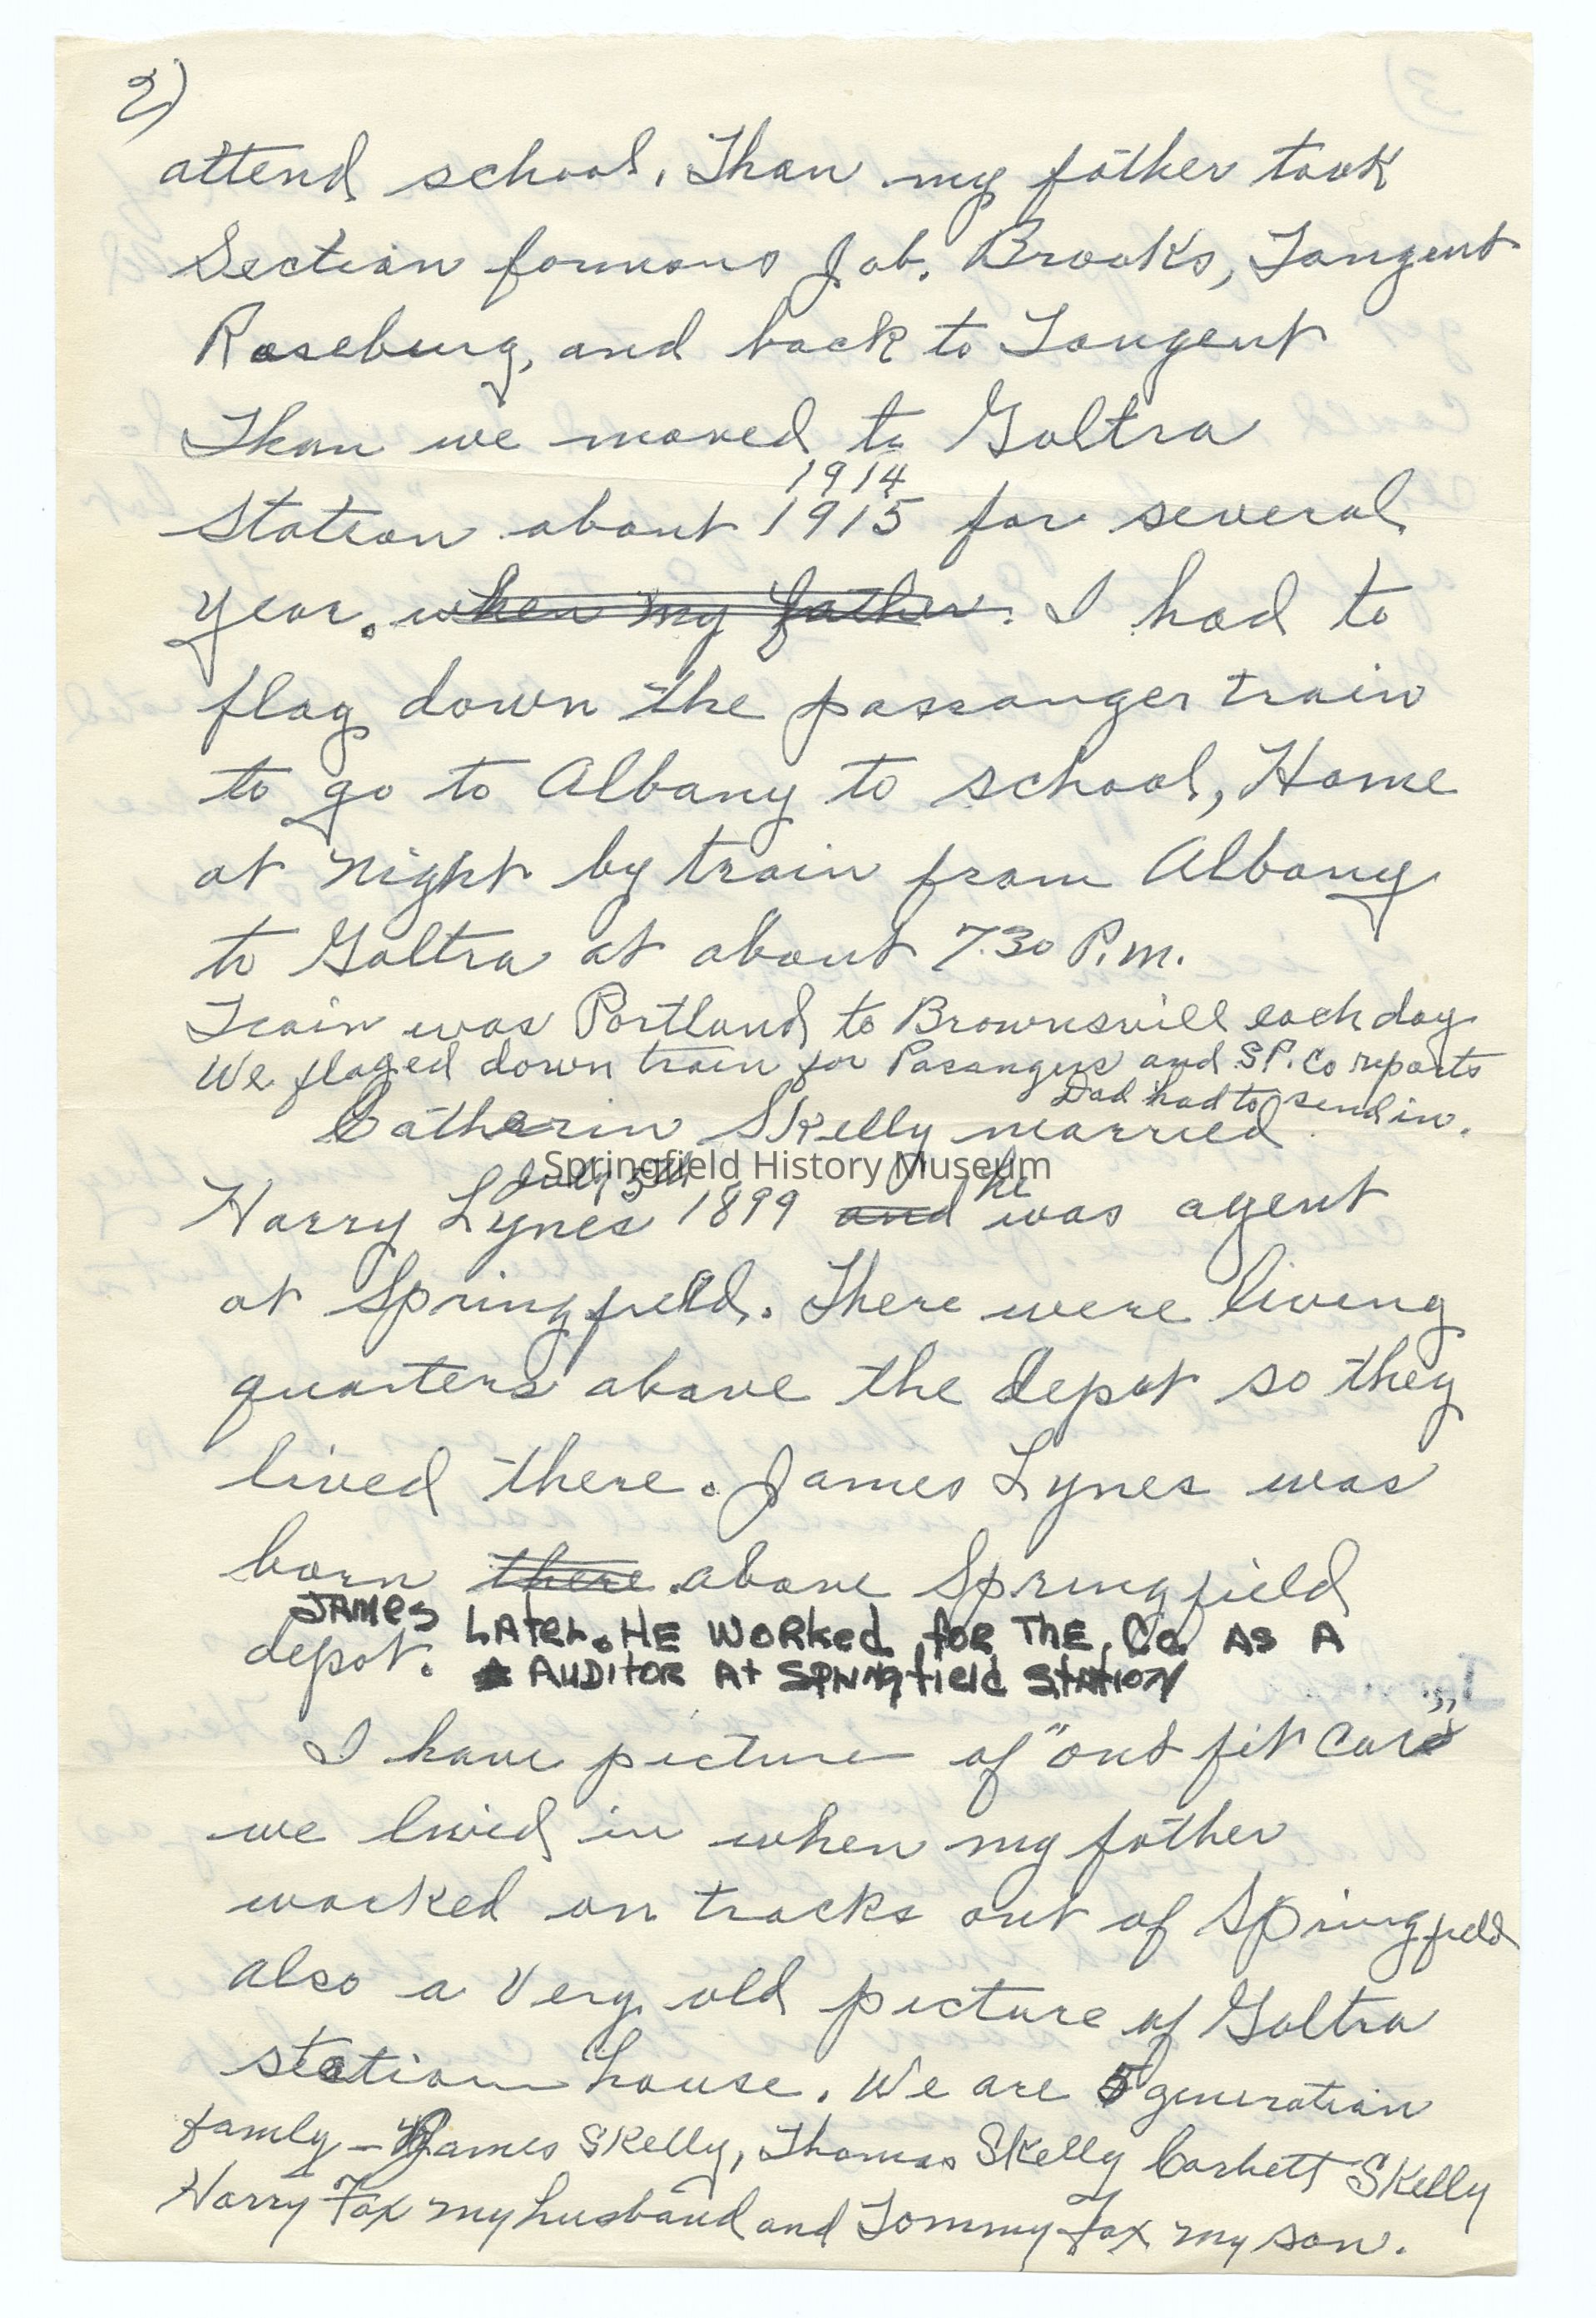 2)
attend school. Than my father took
Section formans Job. Brooks, Tangent
Roseburg, and back to Tangent
Than we moved to Goltra
1914
Station about 1915 for several
year. when my father. I had to
flag down the passanger train
to go to Albany to school, Home
at night by train from Albany
to Goltra at about 7:30 P.m.
Train was Portland to Brownsvill each day
We flaged down train for Passangers and S.P. Co reports
Dad had to send in.
Catherin Skelly married
Springfield History Museum
July 5th he
Harry Lynes 1899 and was agent
at Springfield. There were living
quarters above the depot so they
lived there. James Lynes was
born there above Springfield
depot. JAMES LATER. HE WORKed foR ThE Co. AS A
AUDITOR At SPRINgfield StATION
I have picture of "out fit Cars"
we lived in when my father
worked on tracks out of Springfield
also a very old picture of Goltra
station house. We are 5 generation
family - James Skelly, Thomas Skelly Corbett Skelly
Harry Fox my husband and Tommy Fox my son.